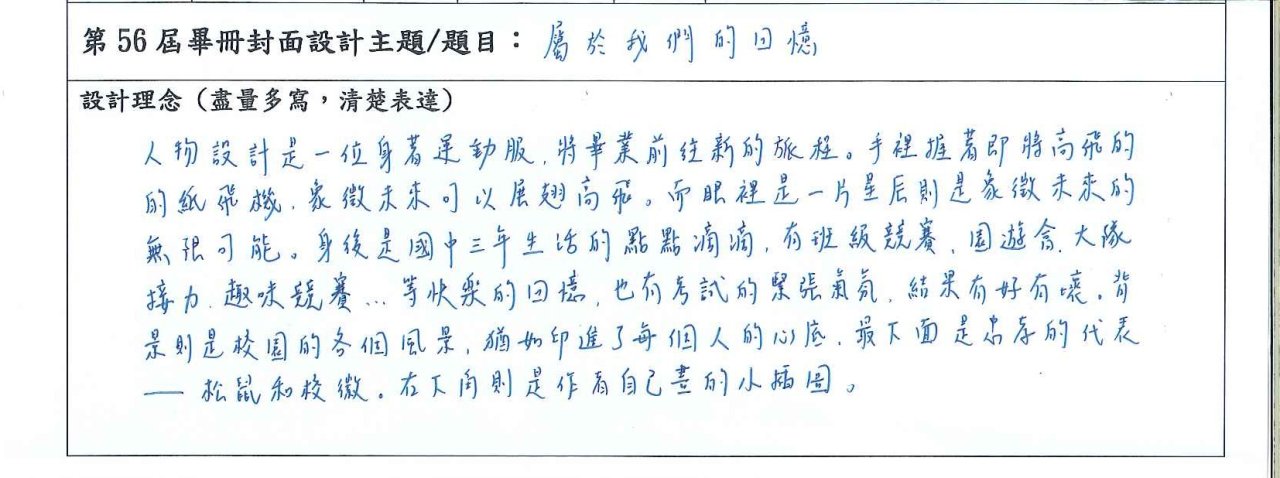 第 56 屆畢冊封面設計主題/題目：屬於我們的回憶
設計理念（盡量多寫，清楚表達）
人物設計是一位身著運動服，將畢業前往新的旅程。手裡握著即將高飛的
的紙飛機，象徵未來可以展翅高飛。而眼裡是一片星辰則是象徵未來的
無限可能。身後是國中三年生活的點點滴滴，有班級競賽、園遊會、大隊
接力、趣味競賽…等快樂的回憶，也有考試的緊張氣氛，結果有好有壞。背
景則是校園的各個風景，猶如印進了每個人的心底，最下面是忠孝的代表
── 松鼠和校徽。右下角則是作者自己畫的小插圖。